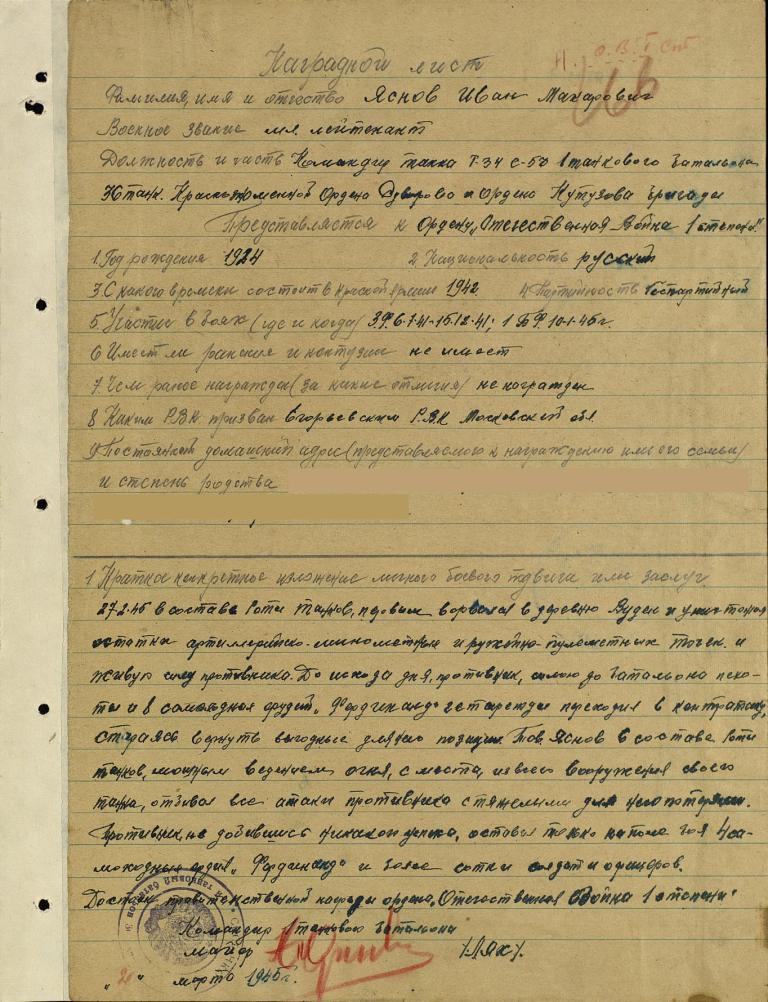 О.В. I Ст
Наградной лист
Фамилия, имя и отчество Яснов Иван Макарович
Военное звание мл. лейтенант
Должность и часть Командир танка Т-34 1 танкового батальона
танк. Краснознаменной Ордена и Ордена Кутузова бригады
Представляется к Ордену „Отечественная Война 1 степени"
1. Год рождения 1924 2. Национальность русский
3. С какого времени состоит в Красной Армии 1942 4. Партийность беспартийный
5. Участие в боях (где и когда) 1 БФ 10-1-45г.
6 Имеет ли ранения и контузии не имеет
7. Чем ранее награжден (за какие отличия) не награжден
8 Каким РВК призван Егорьевским РВК Московской обл
9 Постоянный домашний адрес (представляемого к награждению или его семьи)
и степень родства
1 Краткое конкретное изложение личного боевого подвига или заслуг.
27.2.45 в составе роты танков, первым ворвался в деревню и уничтожил
остатки артиллерийско-минометных и ружейно-пулеметных точек и
живую силу противника. До исхода дня, противник, силою до батальона пехо-
ты и 8 самоходных орудий „Фердинанд" переходил в контратаку,
стараясь вернуть выгодные для него позиции. Тов. Яснов в составе роты
танков, мощным ведением огня, с места, из всего вооружения своего
танка, отбивал все атаки противника с тяжелыми для него потерями.
Противник, не добившись никакого успеха, оставил только на поле боя 4 са-
моходных орудия „Фердинанд" и более сотни солдат и офицеров.
Достоин правительственной награды ордена „Отечественная Война 1 степени"
Командир 1 танкового батальона
майор /Ляк/.
„2" марта 1945г.